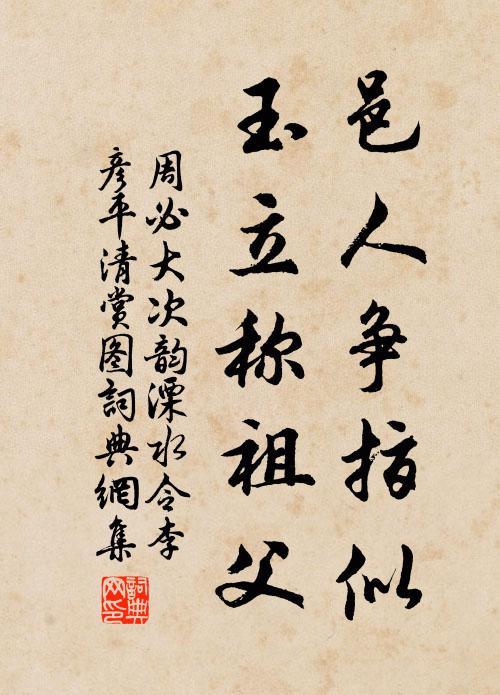 邑人争指似
玉立称祖父
周必大次韵溧水令李
彦平清赏图詞典網集
詞典
网印